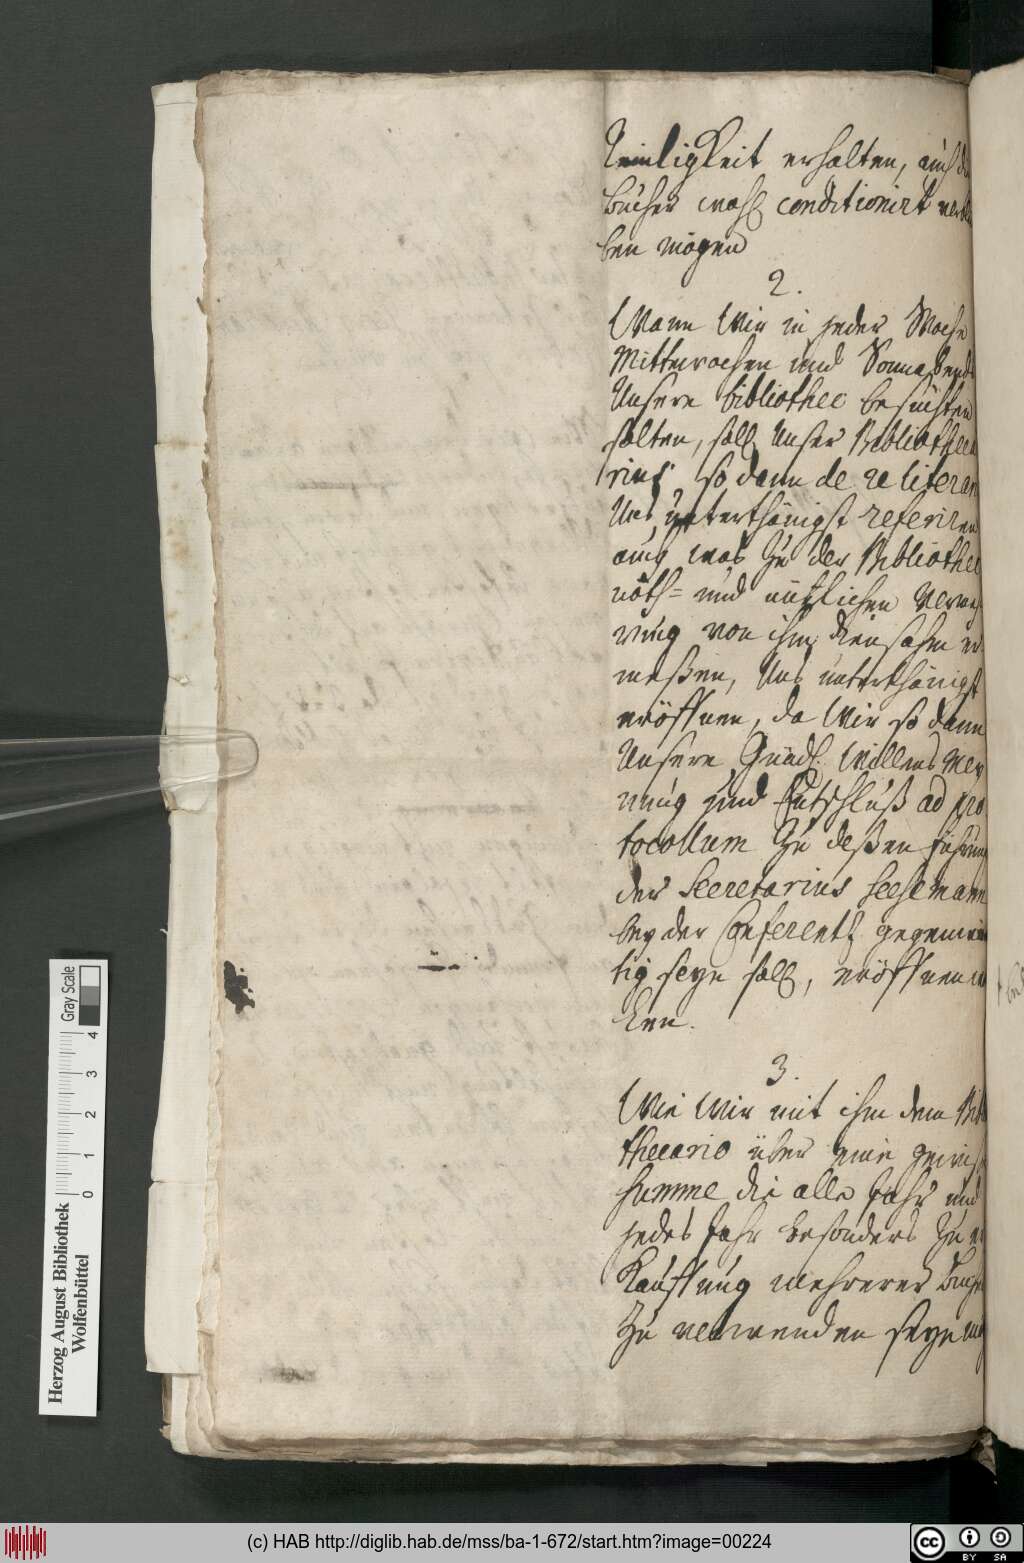 Reinligkeit erhalten, auch die
bücher wohl conditionirt verblei
ben mögen
2.
Wann Wir in jeder Woche
Mittewochen und Sonnabends
Unsere bibliothec besuchen
solten, soll Unser Bibliotheca
rius so dann de re literaria
Uns unterthänigst referiren
auch was zu der Bibliothec
nöth= und nützlichen Vermeh
rung von ihm diensahm er
meßen, Uns unterthänigst
eröffnen, da Wir so dann
Unsere Gnädl. Willens Mey
nung und Entschluß ad pro
tocollum zu deßen führung
der Secretarius Seesemann
bey der Conferentz gegenwär
tig seyn soll, eröffnen wer
den.
3.
Wie Wir mit ihm dem Biblio
thecario über eine gewisse
Summe die alle Jahr und
jedes Jahr besonders zu er
Kauffung mehrerer bücher
zu verwenden seyn
Herzog August Bibliothek
Wolfenbüttel
0 1 2 3 4
Gray Scale
(c) HAB http://diglib.hab.de/mss/ba-1-672/start.htm?image=00224
cc BY SA